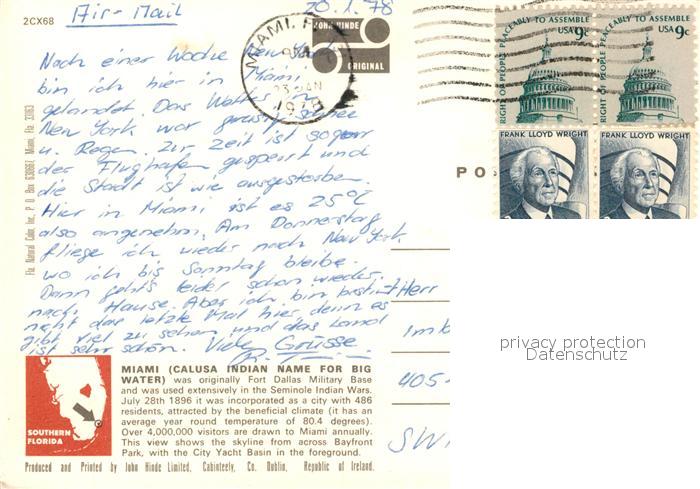 Air-Mail
20.1.78
2CX68
JOHN HINDE
ORIGINAL
MIAMI, F
JAN
1978
RIGHT OF PEOPLE PEACEABLY TO ASSEMBLE
USA 9c
RIGHT OF PEOPLE PEACEABLY TO ASSEMBLE
USA 9c
FRANK LLOYD WRIGHT
FRANK LLOYD WRIGHT
PO
Nach einer Woche New York
bin ich hier in Miami
gelandet. Das Wetter in
New York war grausig: Schnee
u. Regen. Zur Zeit ist sogar
der Flughafen gesperrt und
die Stadt ist wie ausgestorben.
Hier in Miami ist es 25°C
also angenehm. Am Donnerstag
fliege ich wieder nach New York
wo ich bis Sonntag bleibe.
Dann geht's leider schon wieder
nach Hause. Aber ich bin bestimmt
nicht das letzte Mal hier, denn es
gibt viel zu sehen und das Land
ist sehr schön. Viele Grüsse
Herr
Im
405
SW
Fla. Natural Color, Inc., P. O. Box Miami, Fla.
privacy protection
Datenschutz
SOUTHERN
FLORIDA
MIAMI (CALUSA INDIAN NAME FOR BIG
WATER) was originally Fort Dallas Military Base
and was used extensively in the Seminole Indian Wars.
July 28th 1896 it was incorporated as a city with 486
residents, attracted by the beneficial climate (it has an
average year round temperature of 80.4 degrees).
Over 4,000,000 visitors are drawn to Miami annually.
This view shows the skyline from across Bayfront
Park, with the City Yacht Basin in the foreground.
Produced and Printed by John Hinde Limited, Cabinteely, Co. Dublin, Republic of Ireland.